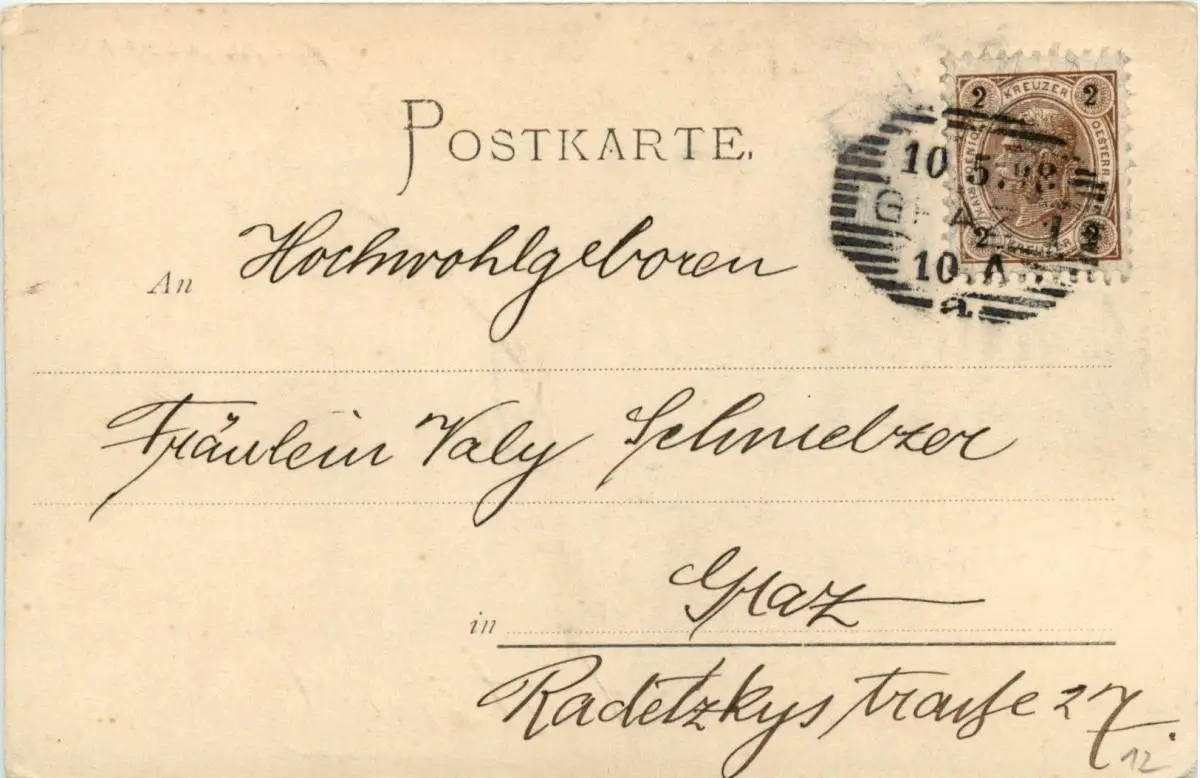 POSTKARTE.
2 KREUZER 2
OESTERR.
2 KREUZER 2
10 5 98
GRAZ 1
10.A
a
An Hochwohlgeboren
Fräulein Valy Schmelzer
in Graz
Radetzkystraße 27.
12